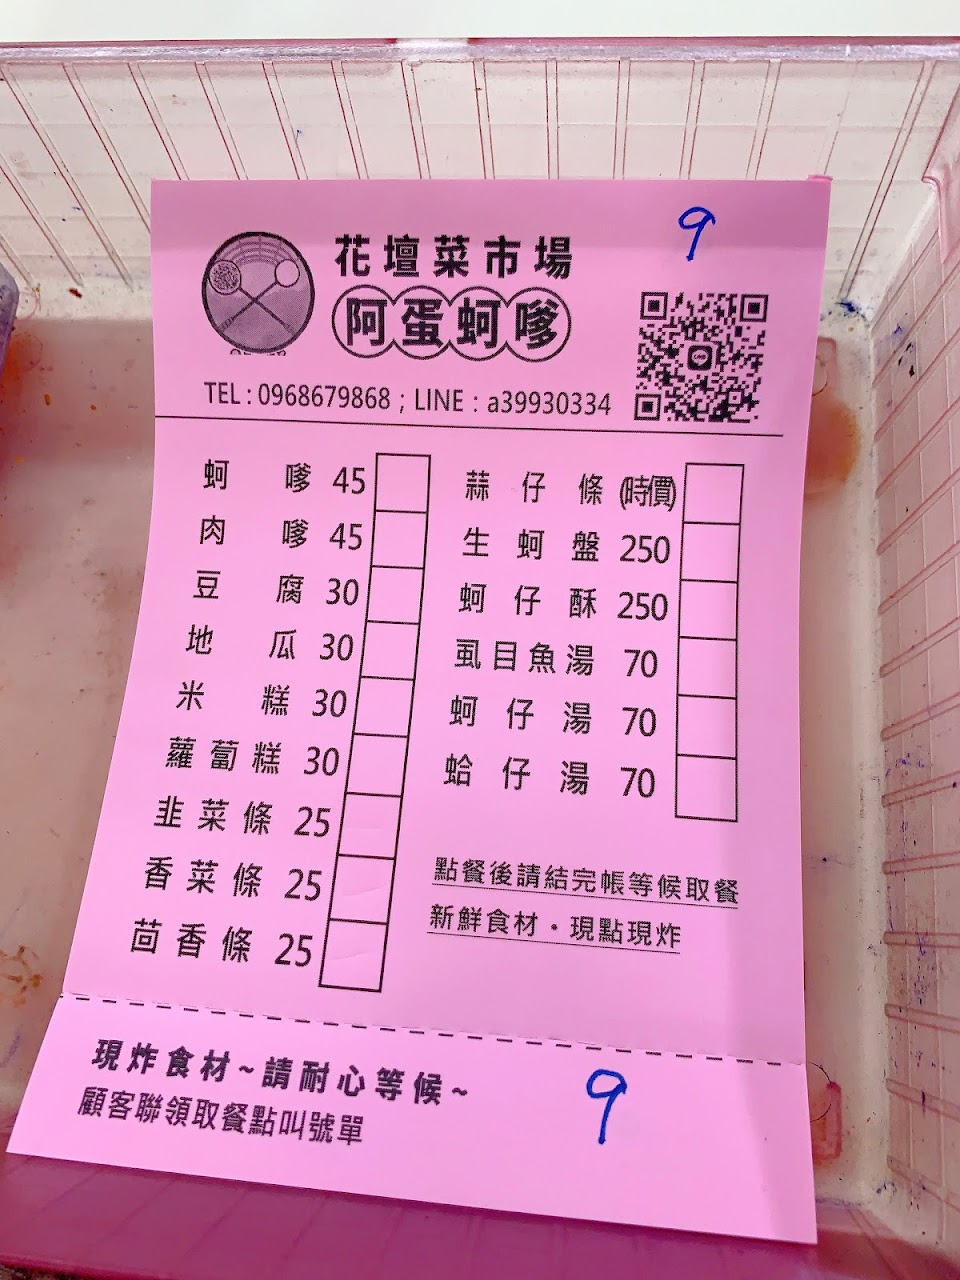 9
花壇菜市場
阿蛋蚵嗲
TEL : 0968679868 ; LINE : a39930334
蚵嗲 45
肉嗲 45
豆腐 30
地瓜 30
米糕 30
蘿蔔糕 30
韭菜條 25
香菜條 25
茴香條 25
蒜仔條 (時價)
生蚵盤 250
蚵仔酥 250
虱目魚湯 70
蚵仔湯 70
蛤仔湯 70
點餐後請結完帳等候取餐
新鮮食材・現點現炸
現炸食材~請耐心等候~
顧客聯領取餐點叫號單
9